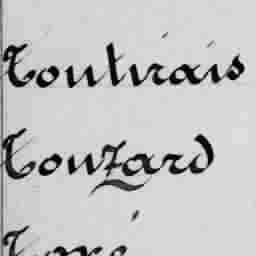 Toutirais
Touzard